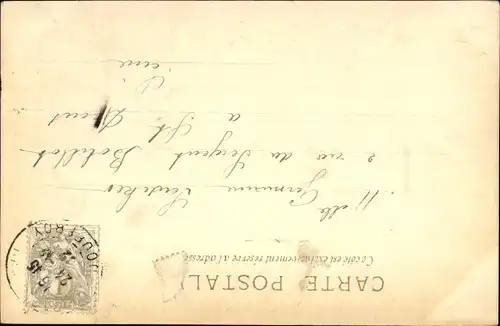 CARTE POSTALE
Ce côté est exclusivement réservé à l'adresse
Melle Germaine
2 rue du Sergent Bobillot
a St Denis
Seine
JOUFFROY
15 15